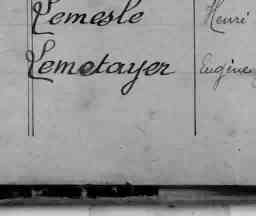 Lemesle Henri
Lemetayer Eugène